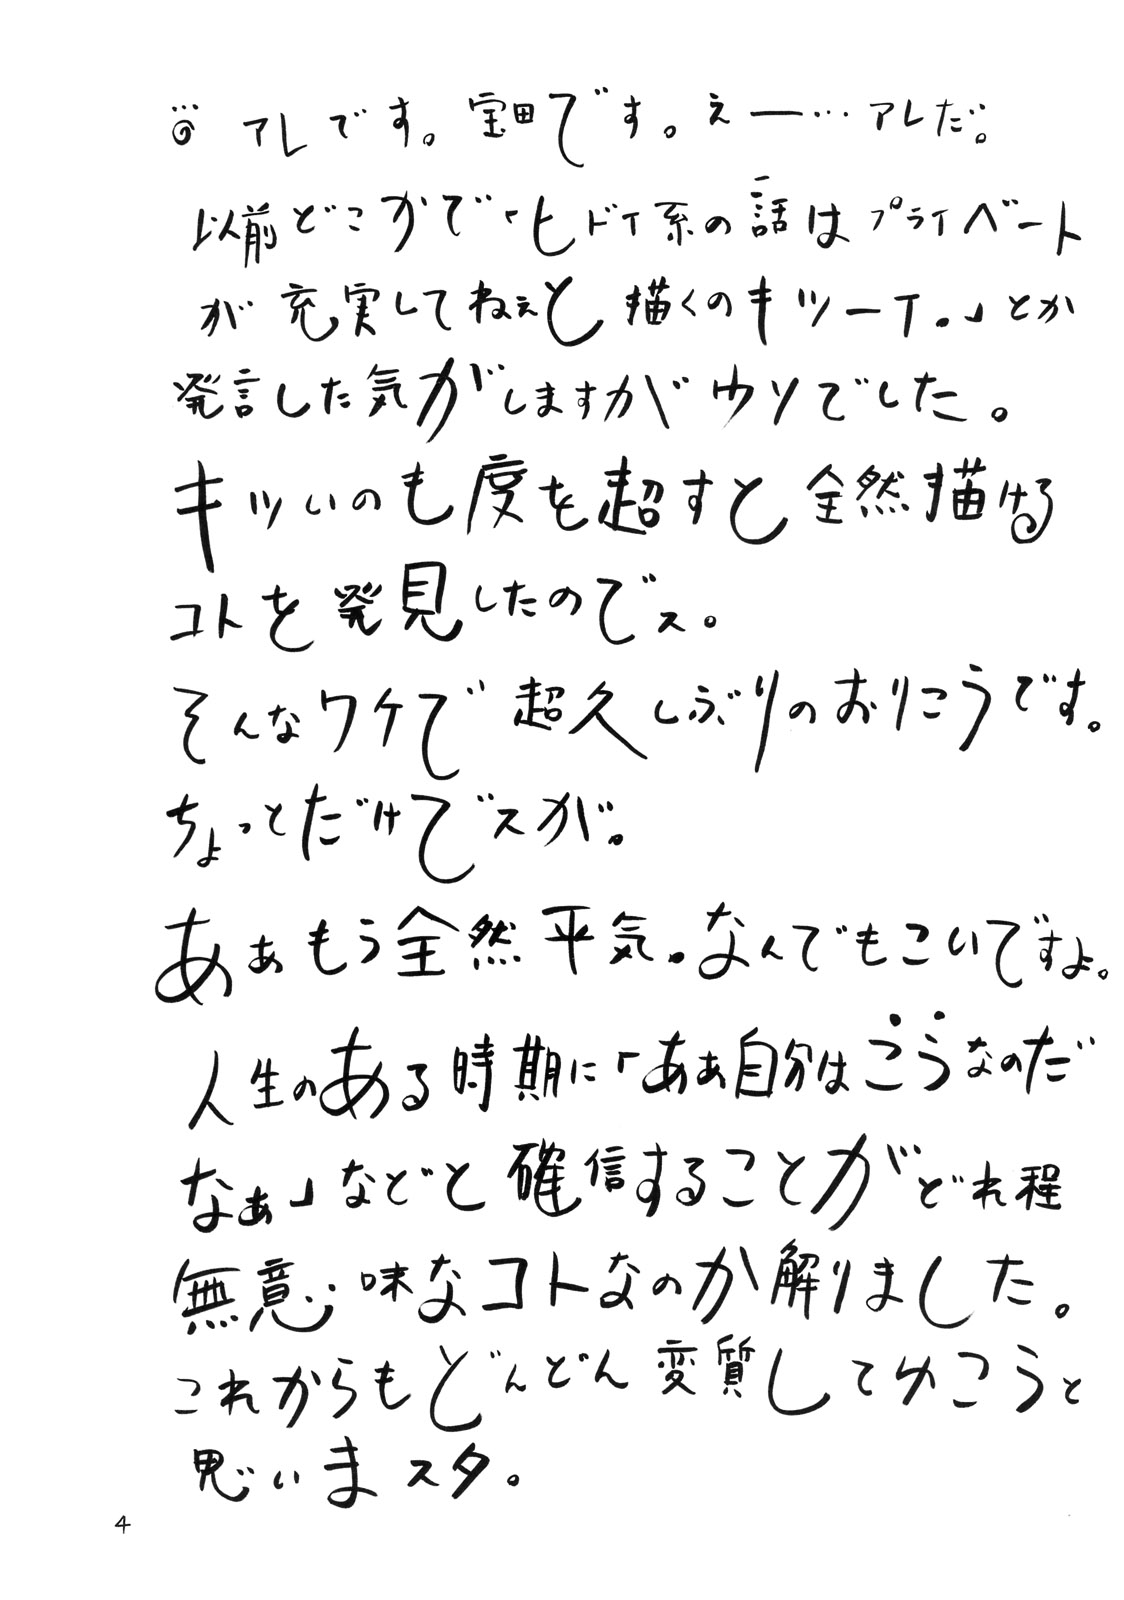 アレです。宝田です。え――…アレだ。
以前どこかで「ヒドイ系の話はプライベート
が充実してねぇと描くのキツーイ。」とか
発言した気がしますがウソでした。
キツいのも度を超すと全然描ける
コトを発見したのでス。
そんなワケで超久しぶりのおりこうです。
ちょっとだけでスが。
あぁもう全然平気。なんでもこいですよ。
人生のある時期に「あぁ自分はこうなのだ
なぁ」などと確信することがどれ程
無意味なコトなのか解りました。
これからもどんどん変質してゆこうと
思いまスタ。
4